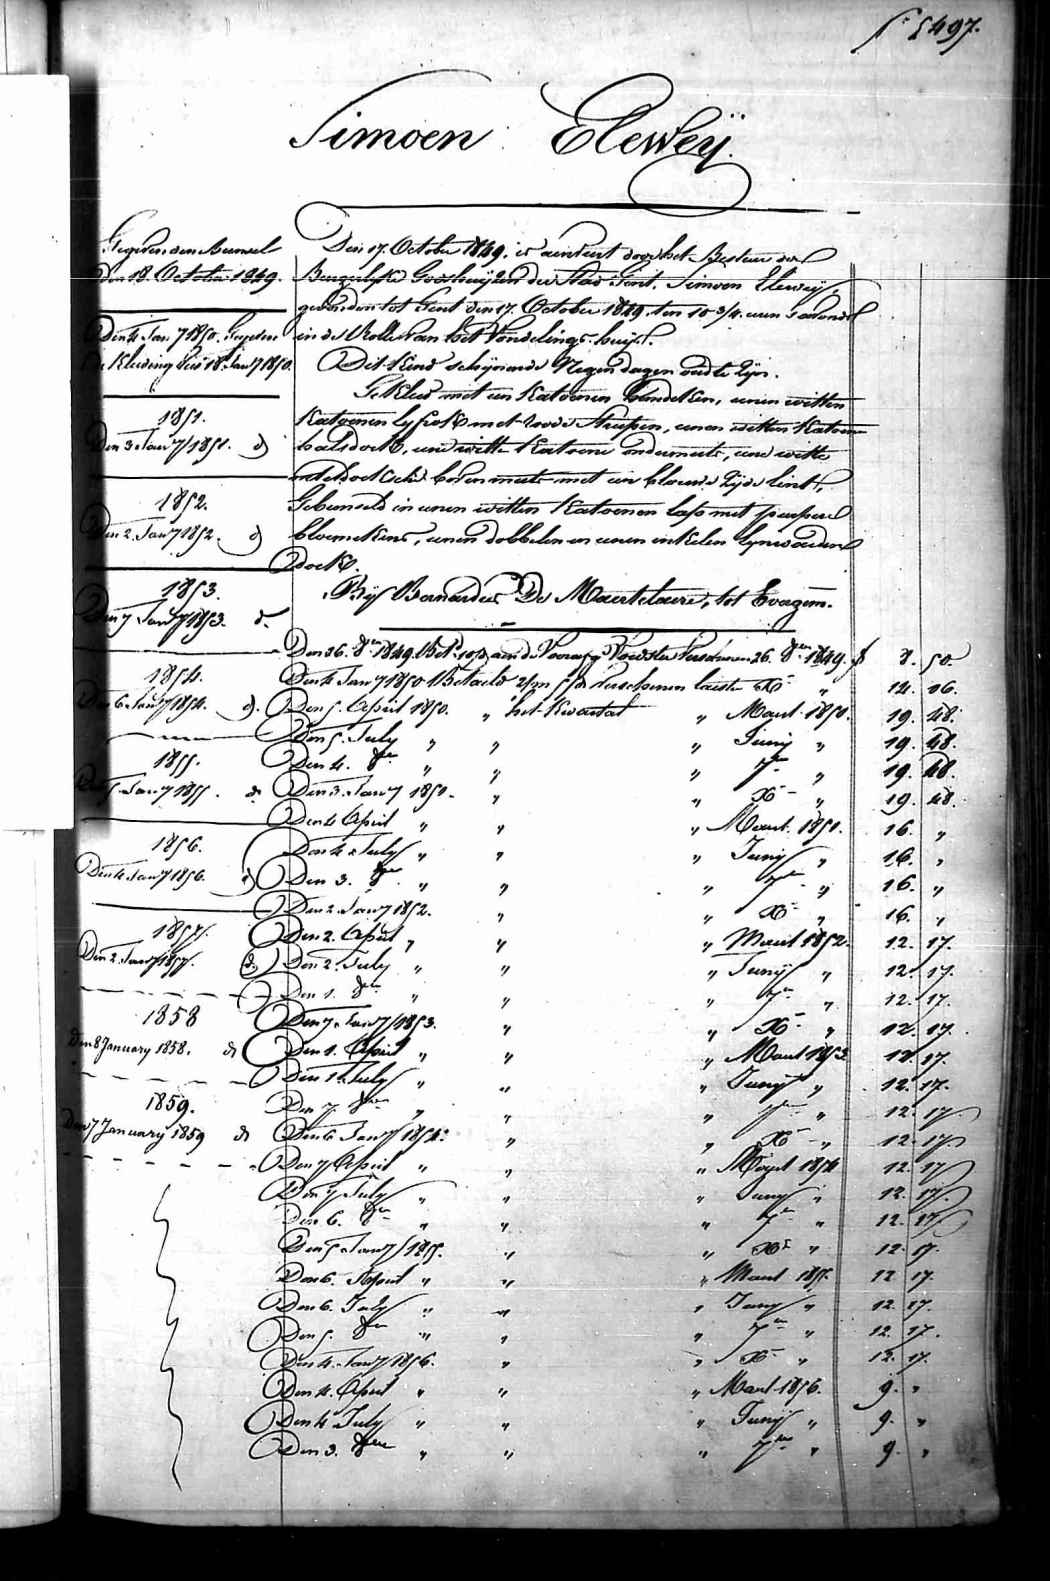 497.
Simoen Eleweÿ.
Gegeven den Bunsel
den 18. October 1849.
Den 4 Janry 1850. Gegeven
de Kleeding van 18. Janry 1850.
1851.
Den 3 Janry 1851. d
1852.
Den 2. Janry 1852. d
1853.
Den 7 Janry 1853. d.
1854.
Den 6 Janry 1854. d.
1855.
Den 5 Janry 1855. d.
1856.
Den 4 Janry 1856. d
1857.
Den 2. Janry 1857. d.
1858
Den 8 January 1858. d
1859.
Den 7 January 1859 d
Den 17. October 1849. is aenveert door het Bestuer der
Burgerlyke Godshuyzen der Stad Gent. Simoen Eleweÿ,
gevonden tot Gent den 17. October 1849. ten 10 3/4. uren s'avonds
in de Rolle van het Vondelings-huys.
Dit Kind schynende Negen dagen oud te zyn.
Gekleed met een Katoenen hemdeken, eenen witten
Katoenen lyfrok met roode streepen, eenen witten Katoenen
halsdoek, eene witte Katoene ondermuts, eene witte
neteldoeksche bovenmuts met een blauwe zyde lint,
Gebunseld in eenen witten Katoenen laps met purpere
bloemekens, eenen dobbelen en eenen enkelen lynwaeden
doek.
By Bernardus De Maertelaere, tot Evergem.
Den 26. 8er 1849. Bet. aen de Voorafg. Voedster Verschenen 26. 8er 1849. f 8. 50.
Den 4 Janry 1850 Betaeld Verschenen laeste Xr " 14. 16.
Den 5. April 1850. " het Kwartael " Maert. 1850. 19. 48.
Den 5. July " " " Juny " 19. 48.
Den 4. 8er " " " 7er " 19. 48.
Den 3. Janry 1851. " " Xr " 19. 48.
Den 4 April " " " Maert. 1851. 16. "
Den 4 July " " " Juny " 16. "
Den 3. 8er " " " 7er " 16. "
Den 2. Janry 1852. " " Xr " 16. "
Den 2. April " " " Maert 1852. 12. 17.
Den 2. July " " " Juny " 12. 17.
Den 1. 8er " " " 7er " 12. 17.
Den 7. Janry 1853. " " Xr " 12. 17.
Den 1. April " " " Maert 1853 12. 17.
Den 1. July " " " Juny " 12. 17.
Den 7. 8er " " " 7er " 12. 17
Den 6 Janry 1854. " " Xr " 12. 17
Den 7 April " " " Maert 1854 12. 17
Den 7 July " " " Juny " 12. 17.
Den 6. 8er " " " 7er " 12. 17
Den 5 Janry 1855. " " Xr " 12. 17.
Den 6. April " " " Maert 1855. 12 17.
Den 6. July " " " Juny " 12. 17.
Den 5. 8er " " " 7er " 12. 17.
Den 4. Janry 1856. " " Xr " 12. 17.
Den 4. April " " " Maert 1856. 9. "
Den 4 July " " " Juny " 9. "
Den 3. 8er " " " 7er " 9. "